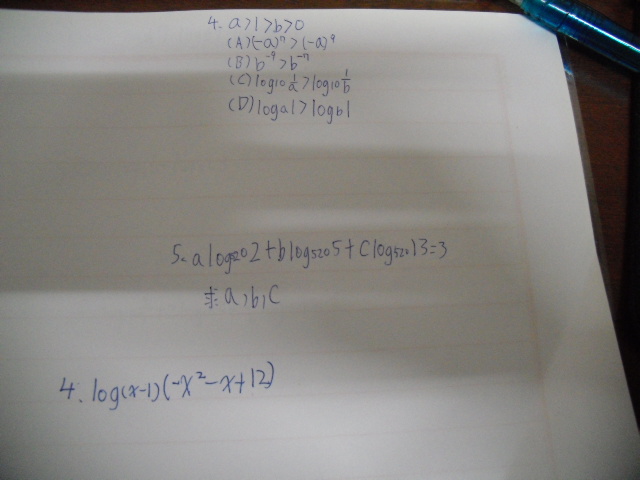 4. a>1>b>0
(A)(-a)⁷>(-a)⁹
(B) b⁻⁹>b⁻⁷
(C) log10 1/a > log10 1/b
(D) loga1>logb1
5. a log520 2+b log520 5+C log520 13=3
求a,b,C
4. log(x-1)(-x²-x+12)